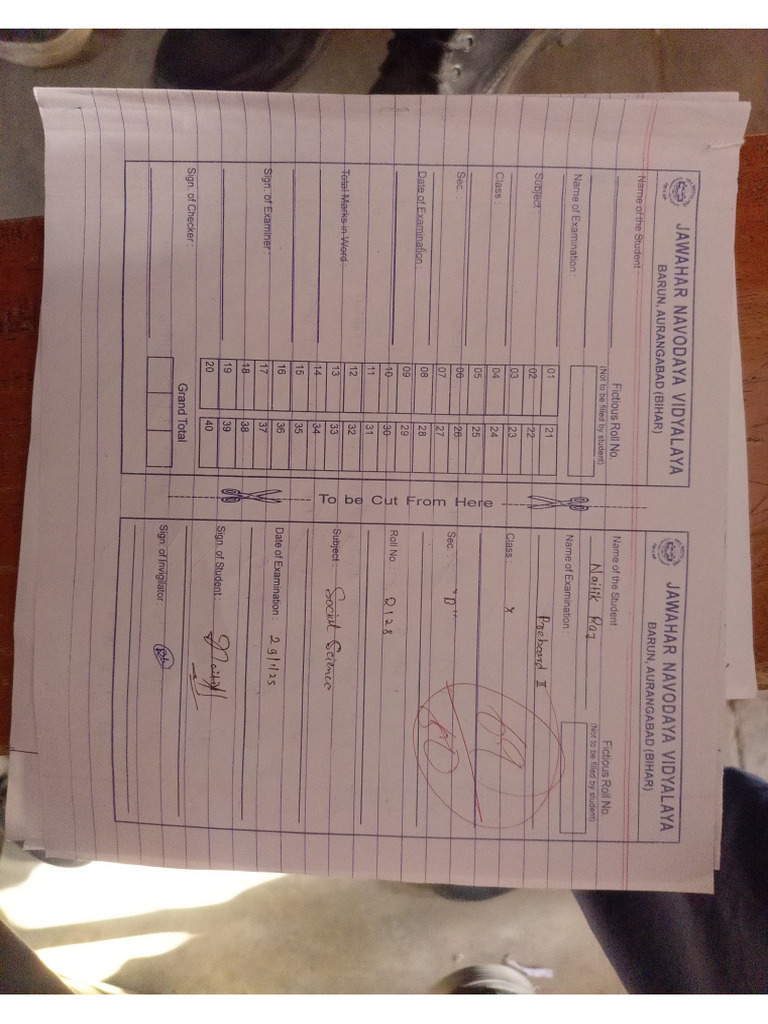 JAWAHAR NAVODAYA VIDYALAYA
BARUN, AURANGABAD (BIHAR)
Name of the Student :
Fictious Roll No.
(Not to be filled by student)
Name of Examination :
Subject
Class :
Sec. :
Date of Examination :
Total Marks in Word
Sign. of Examiner :
Sign. of Checker :
01 21
02 22
03 23
04 24
05 25
06 26
07 27
08 28
09 29
10 30
11 31
12 32
13 33
14 34
15 35
16 36
17 37
18 38
19 39
20 40
Grand Total
To be Cut From Here
JAWAHAR NAVODAYA VIDYALAYA
BARUN, AURANGABAD (BIHAR)
Name of the Student
Naitik Raj
Fictious Roll No.
(Not to be filled by student)
Name of Examination :
Preboard II
Class : X
Sec. : "B"
Roll No. :
Subject : Social Science
Date of Examination : 29/1/25
Sign. of Student : Naitik
Sign. of Invigilator :
80